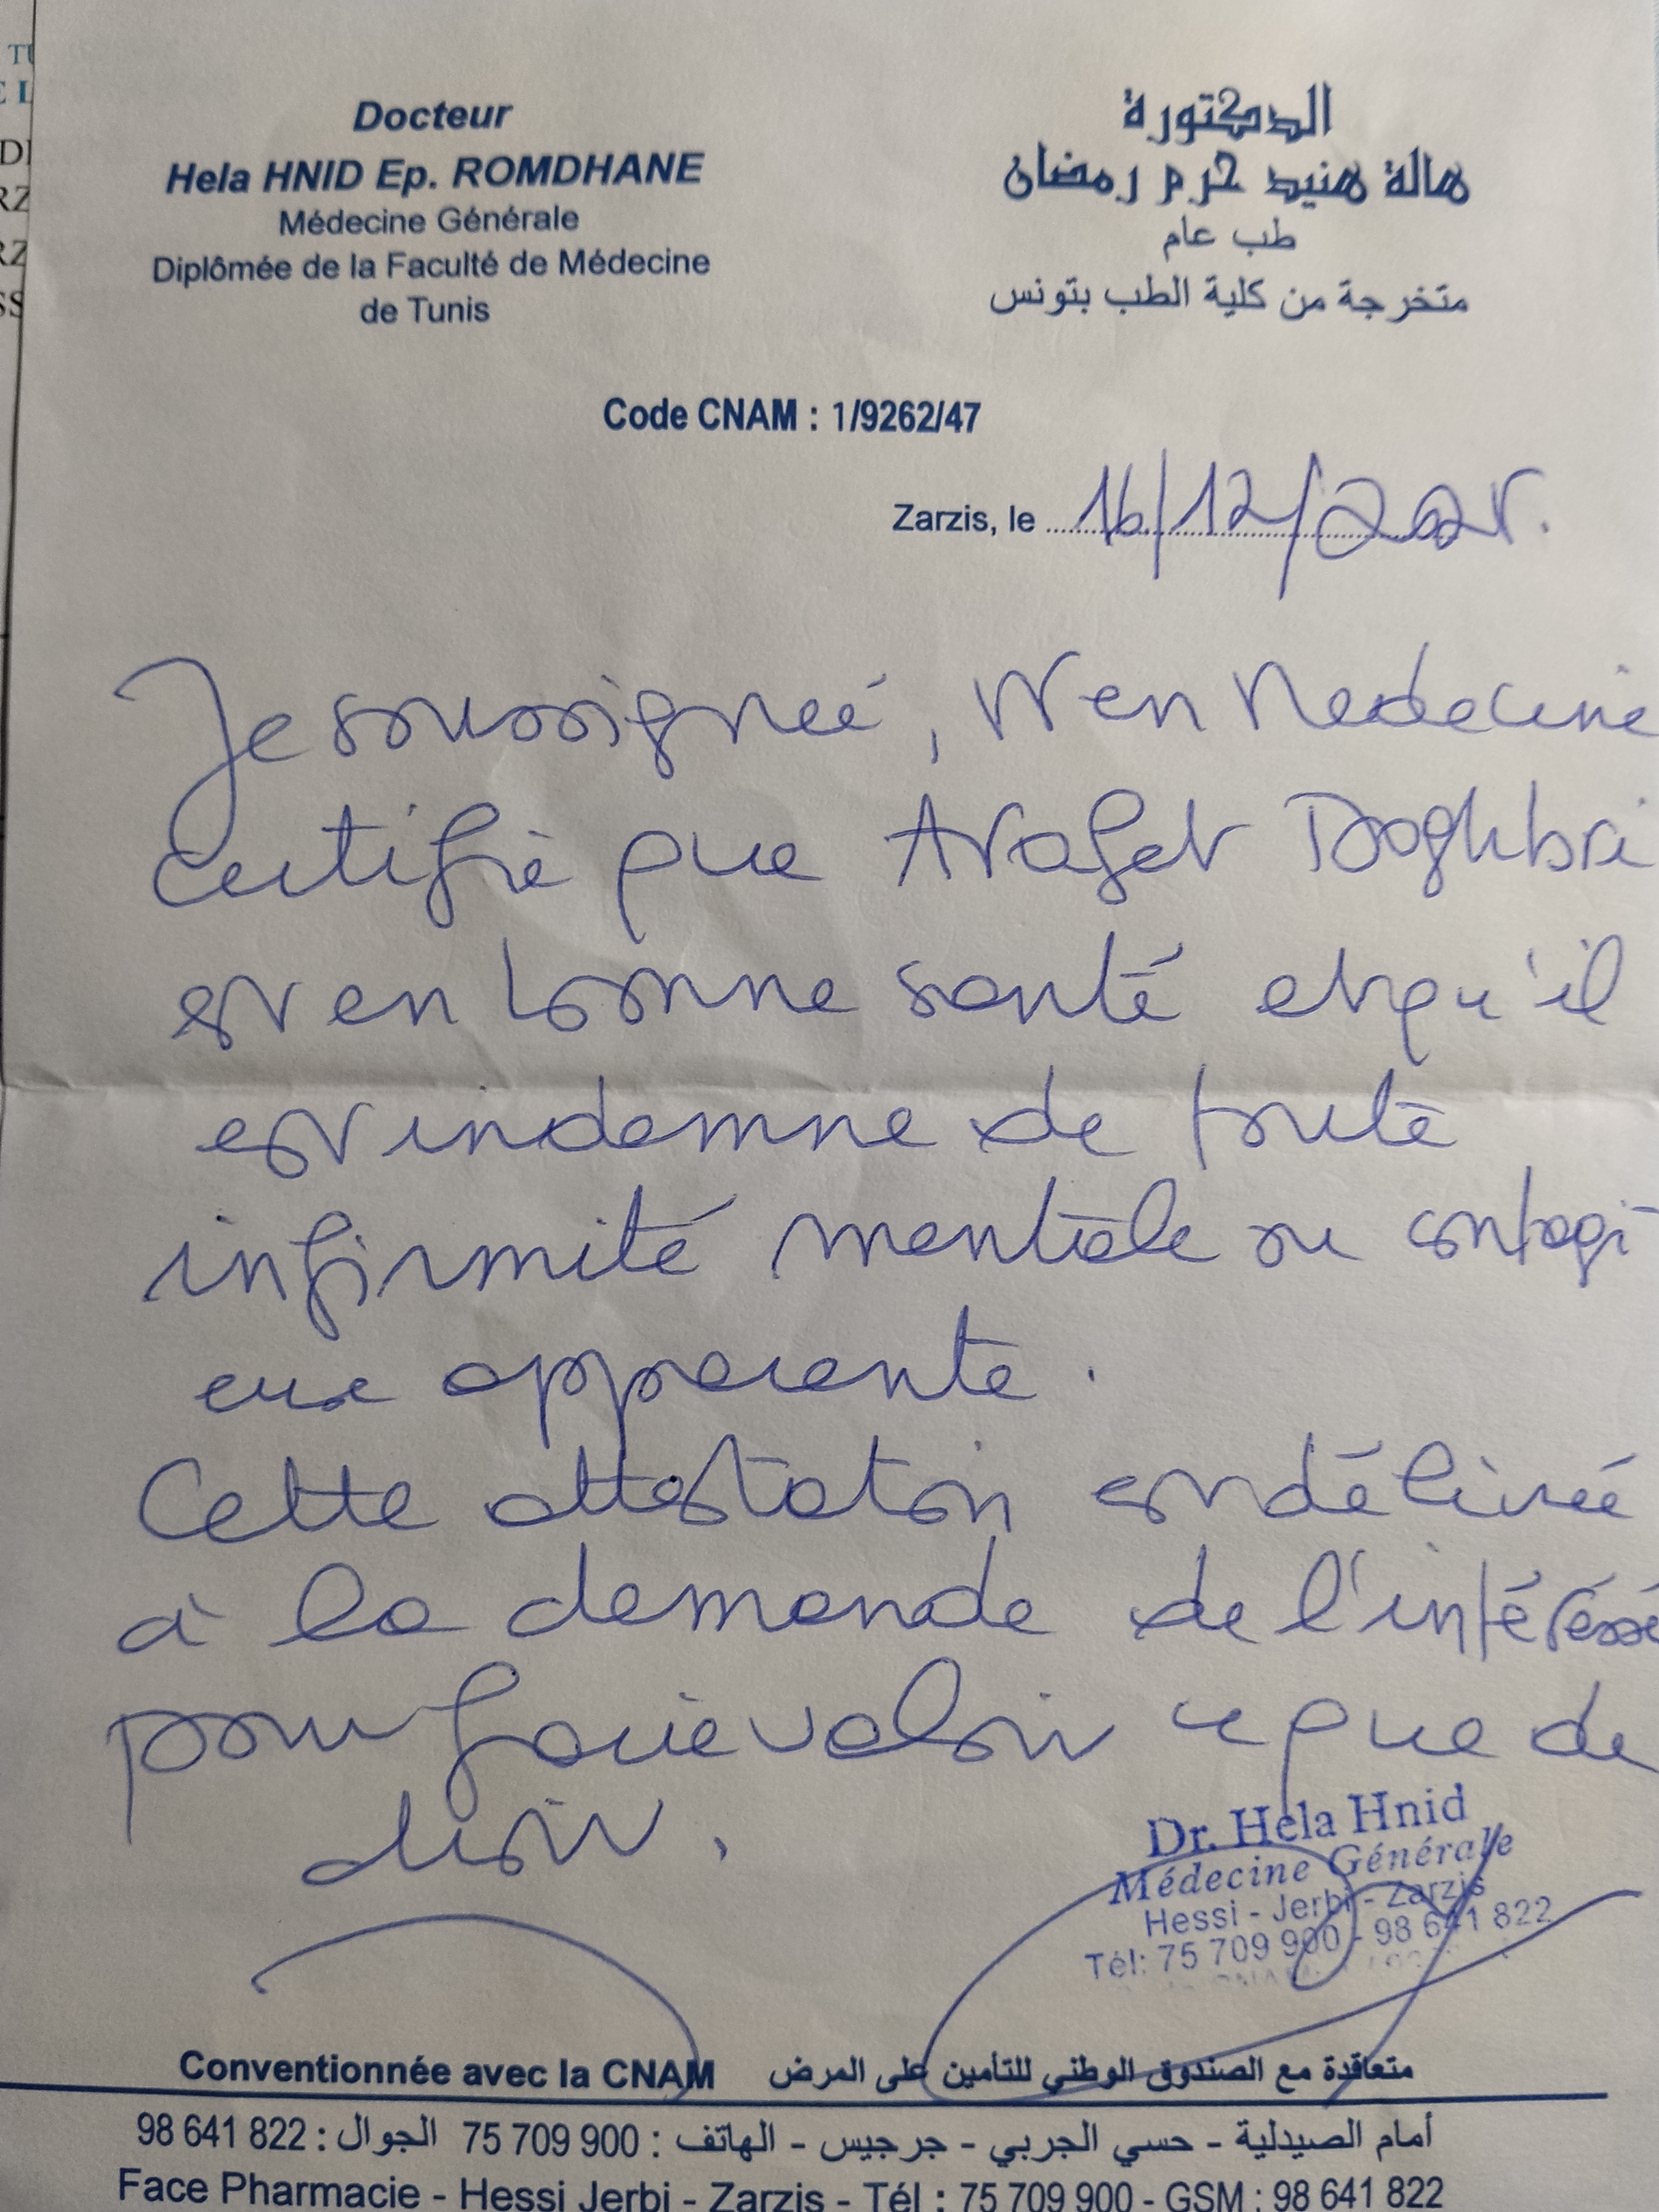 Docteur
Hela HNID Ep. ROMDHANE
Médecine Générale
Diplômée de la Faculté de Médecine
de Tunis
الدكتورة
هالة هنيد حرم رمضان
طب عام
متخرجة من كلية الطب بتونس
Code CNAM : 1/9262/47
Zarzis, le 16/12/2025.
Je soussignée, Dr en Medecine
certifie que Arafet Doghbri
est en bonne santé et qu'il
est indemne de toute
infirmité mentale ou contagi-
euse apparente.
Cette attestation est délivrée
à la demande de l'intéréssé
pour faire valoir ce que de
droit.
Dr. Hela Hnid
Médecine Générale
Hessi - Jerbi - Zarzis
Tél: 75 709 900 - 98 641 822
Conventionnée avec la CNAM متعاقدة مع الصندوق الوطني للتأمين على المرض
أمام الصيدلية - حسي الجربي - جرجيس - الهاتف : 900 709 75 الجوال : 822 641 98
Face Pharmacie - Hessi Jerbi - Zarzis - Tél : 75 709 900 - GSM : 98 641 822